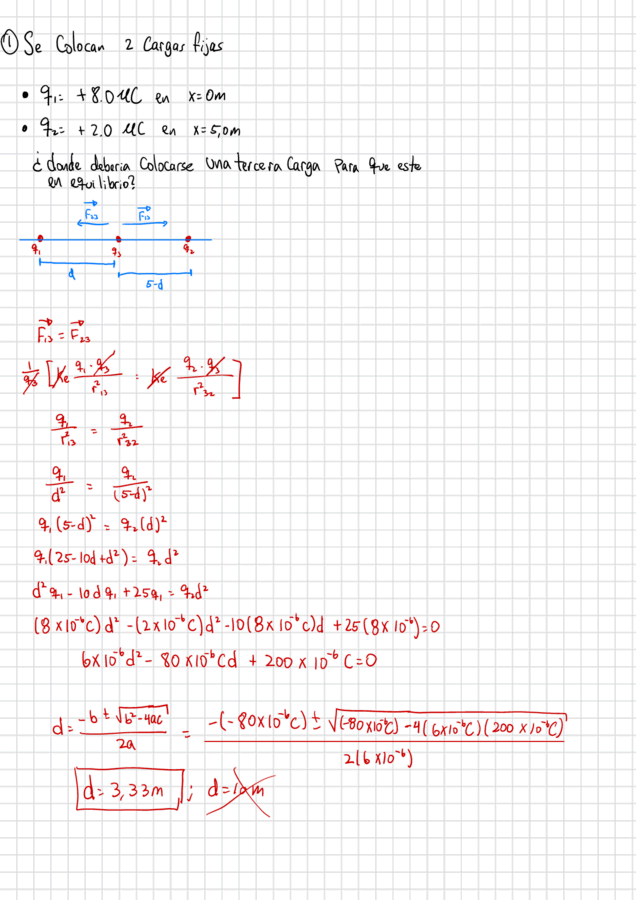 ① Se Colocan 2 Cargas fijas
• q₁= +8.0 μC en x=0m
• q₂= +2.0 μC en x=5,0m
¿donde deberia Colocarse una tercera Carga Para que este
en equilibrio?
F₂₃ F₁₃
q₁ q₃ q₂
d 5-d
F₁₃ = F₂₃
1/q₃ [Ke q₁·q₃/r²₁₃ = Ke q₂·q₃/r²₃₂]
q₁/r²₁₃ = q₂/r²₃₂
q₁/d² = q₂/(5-d)²
q₁(5-d)² = q₂(d)²
q₁(25-10d+d²) = q₂d²
d²q₁ - 10dq₁ + 25q₁ = q₂d²
(8×10⁻⁶C)d² - (2×10⁻⁶C)d² - 10(8×10⁻⁶C)d + 25(8×10⁻⁶) = 0
6×10⁻⁶d² - 80×10⁻⁶Cd + 200×10⁻⁶C = 0
d = -b ± √b²-4ac / 2a = -(-80×10⁻⁶C) ± √(-80×10⁻⁶C) - 4(6×10⁻⁶C)(200×10⁻⁶C) / 2(6×10⁻⁶)
d = 3,33m ; d = 10m